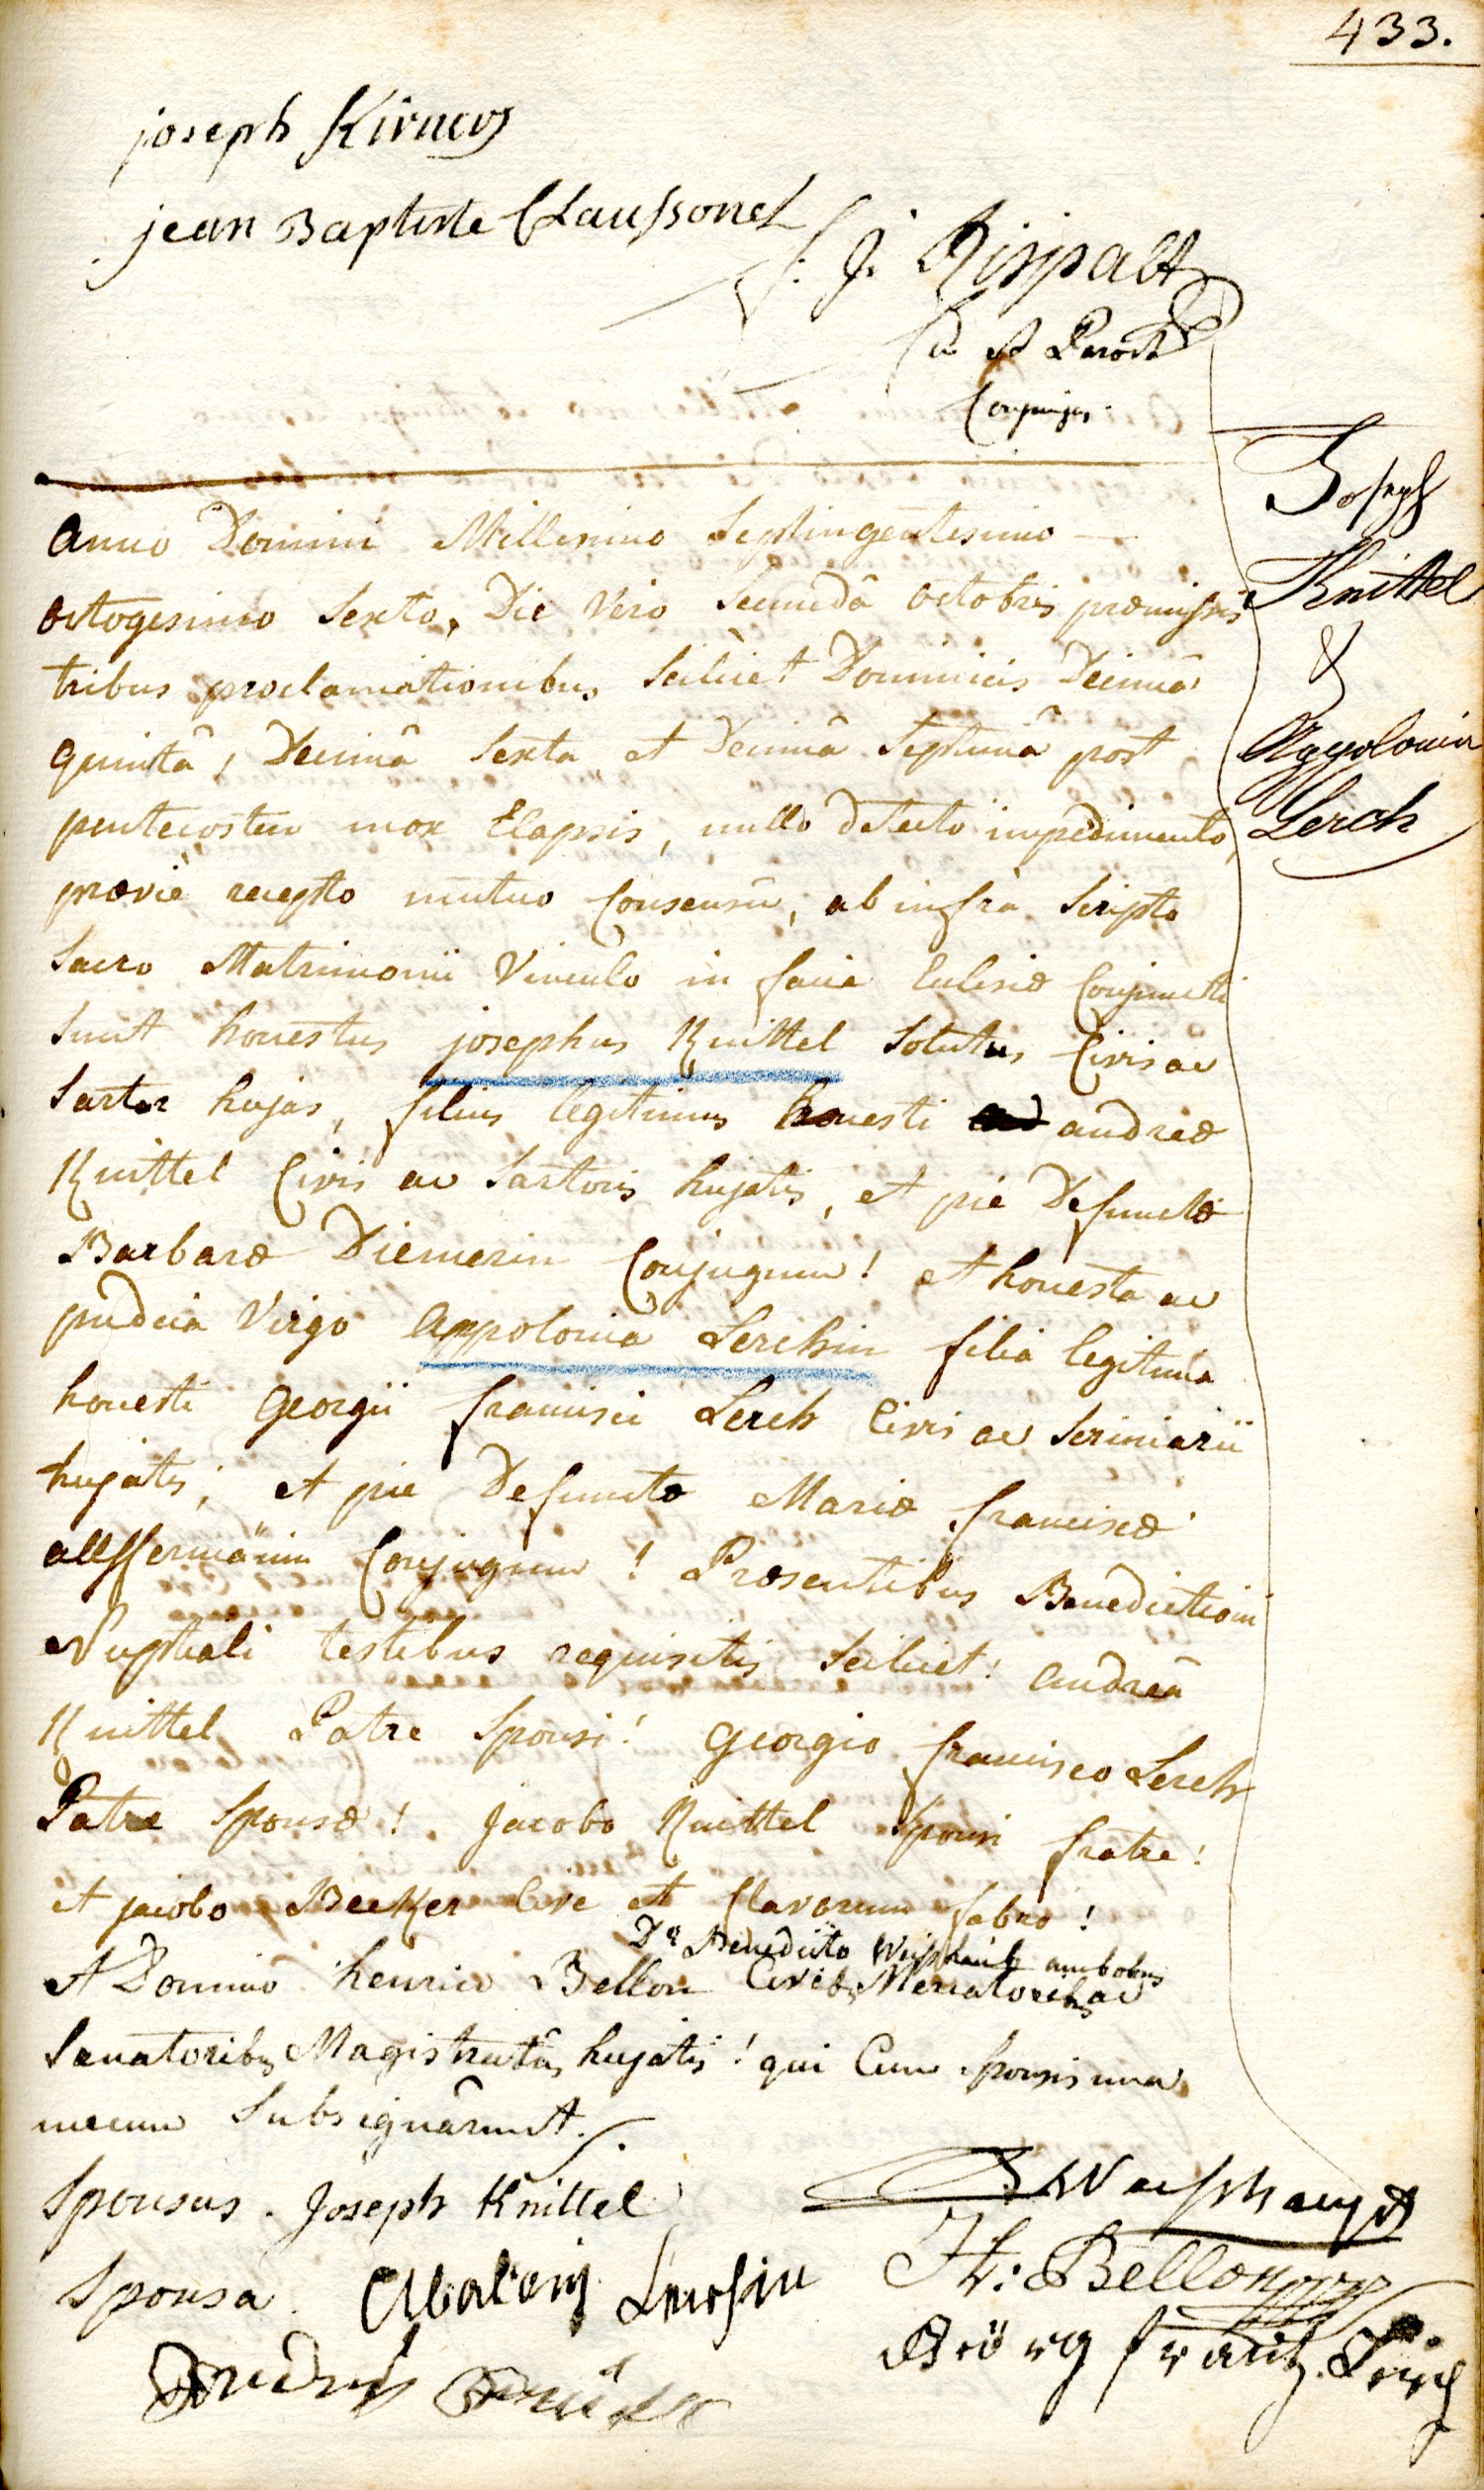 433.
joseph Kirner
jean Baptiste Claussonet
J. Rispalt
Parochus
Joseph
Knittel
&
Appolonia
Lerch
Anno Domini Millesimo Septingentesimo
octogesimo Sexto, Die Vero Secunda octobris præmissis
tribus proclamationibus Scilicet Dominicis Decimâ
quintâ, Decimâ Sexta et Decimâ Septimâ post
pentecosten mox Elapsis, nullo detecto impedimento,
prævie recepto mutuo Consensu, ab infrà Scripto
Sacro Matrimonii Vinculo in facie Eclesiæ Conjuncti
Sunt honestus josephus Knittel Solutus, Civis ac
Sartor hujas, filius legitimus honesti andreæ
Knittel Civis ac Sartoris hujatis, et pie Defunctæ
Barbaræ Diemerin Conjugum! et honesta ac
pudica Virgo Appolonia Lerchin filia legitima
honesti Georgii francisci Lerch Civis ac Scriniarii
hujatis; et pie Defunctæ Mariæ franciscæ
Conjugum! Præsentibus Benedictioni
Nuptiali testibus requisitis Scilicet! andreâ
Knittel Patre Sponsi! Georgio francisco Lerch
Patre Sponsæ! Jacobo Knittel Sponsi fratre!
et jacobo Becker Cive et Clavorum fabro!
Do Benedicto Weisshaubt ambobus
et Domino henrico Bellon Civibus Mercatoribus ac
Senatoribus Magistratûs hujatis! qui Cum Sponsis una
mecum Subsignârunt.
Sponsus. Joseph Knittel
Weisshaupt
Sponsa. Abaloni Lerchin
H: Bellon
Georg frantz Lerch
Andreas Knittel